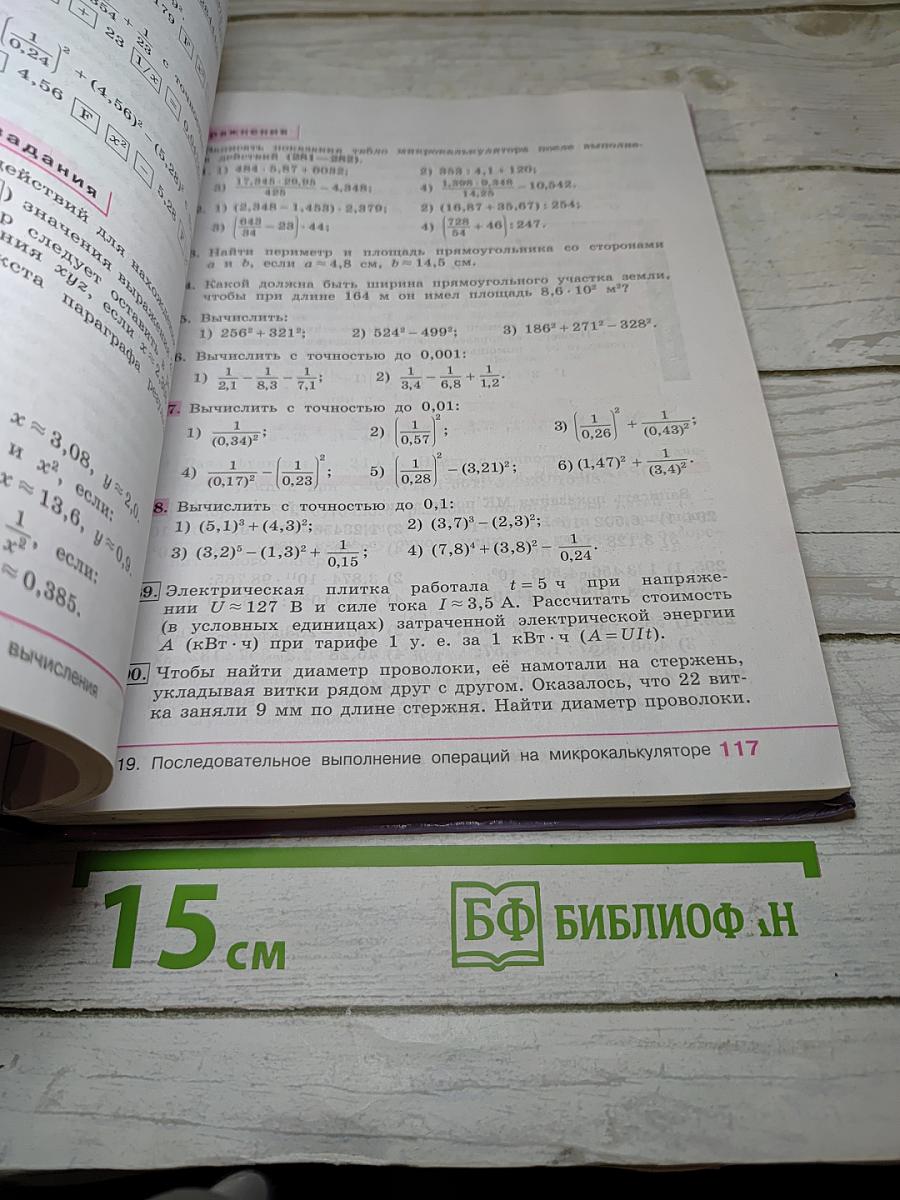 354 +
1/23
с точно
179
F
+ 23 1/x =
(1/0,24)² + (4,56)² − (5,28)²
4,56 F x² − 5,28 F
задания
действий для
значения выражени
следует оставить
ния xyz, если x ≈
кста параграфа
x ≈ 3,08, y ≈ 2,0.
и x², если:
x ≈ 13,6, y ≈ 0,9.
1/x², если:
≈ 0,385.
вычисления
ражнения
записать показания табло микрокалькулятора после выполне-
действий (281—282).
1) 484 · 5,87 + 6032; 2) 353 : 4,1 + 120;
3) 17,345 · 29,95/425 − 4,348; 4) 1,398 · 9,348/14,25 − 10,542.
2. 1) (2,348 − 1,453) · 2,379; 2) (16,87 + 35,67) : 254;
3) (643/34 − 23) · 44; 4) (728/54 + 46) : 247.
3. Найти периметр и площадь прямоугольника со сторонами
a и b, если a ≈ 4,8 см, b ≈ 14,5 см.
4. Какой должна быть ширина прямоугольного участка земли,
чтобы при длине 164 м он имел площадь 8,6 · 10² м²?
5. Вычислить:
1) 256² + 321²; 2) 524² − 499²; 3) 186² + 271² − 328².
6. Вычислить с точностью до 0,001:
1) 1/2,1 − 1/8,3 − 1/7,1; 2) 1/3,4 − 1/6,8 + 1/1,2.
7. Вычислить с точностью до 0,01:
1) 1/(0,34)²; 2) (1/0,57)²; 3) (1/0,26)² + 1/(0,43)²;
4) 1/(0,17)² − (1/0,23)²; 5) (1/0,28)² − (3,21)²; 6) (1,47)² + 1/(3,4)².
8. Вычислить с точностью до 0,1:
1) (5,1)³ + (4,3)²; 2) (3,7)³ − (2,3)²;
3) (3,2)⁵ − (1,3)² + 1/0,15; 4) (7,8)⁴ + (3,8)² − 1/0,24.
9. Электрическая плитка работала t = 5 ч при напряже-
нии U ≈ 127 В и силе тока I ≈ 3,5 А. Рассчитать стоимость
(в условных единицах) затраченной электрической энергии
A (кВт · ч) при тарифе 1 у. е. за 1 кВт · ч (A = UIt).
0. Чтобы найти диаметр проволоки, её намотали на стержень,
укладывая витки рядом друг с другом. Оказалось, что 22 вит-
ка заняли 9 мм по длине стержня. Найти диаметр проволоки.
19. Последовательное выполнение операций на микрокалькуляторе 117
15 см
БФ БИБЛИОФ